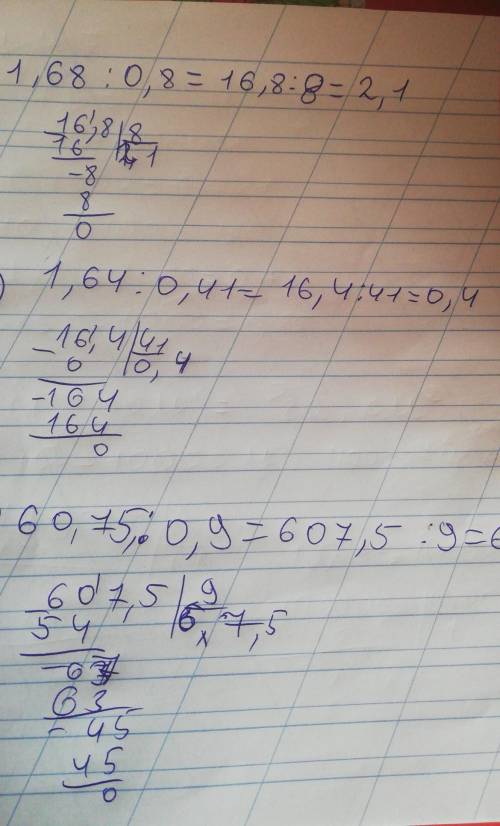 1,68 : 0,8 = 16,8 : 8 = 2,1
16,8 | 8
16 | 2,1
-8
8
0
) 1,64 : 0,41 = 16,4 : 41 = 0,4
-16,4 | 41
0 | 0,4
-164
164
0
60,75 : 0,9 = 607,5 : 9 = 6
-607,5 | 9
54 | 6 7,5
-67
63
-45
45
0